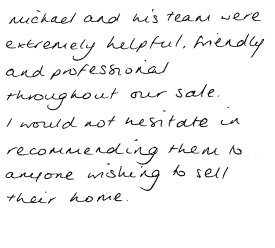 Michael and his team were
extremely helpful, friendly
and professional
throughout our sale.
I would not hesitate in
recommending them to
anyone wishing to sell
their home.